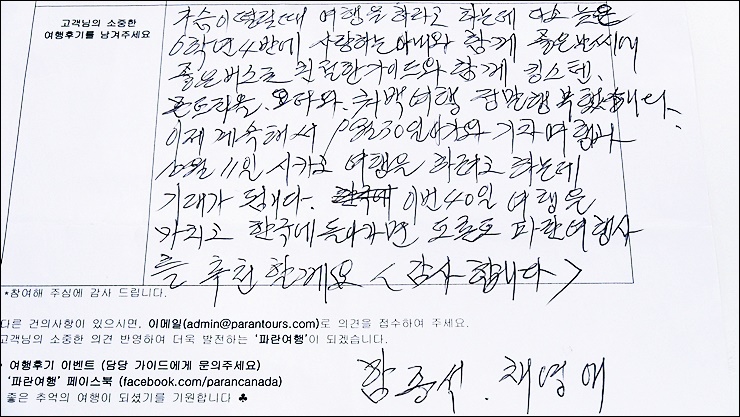 고객님의 소중한
여행후기를 남겨주세요
가슴이 떨릴때 여행을 하라고 하는데 다소 늦은
6학년 4반에 사랑하는 아내와 함께 좋은 날씨에
좋은 버스로 친절한 가이드와 함께 킹스톤,
몬트리올, 오타와, 퀘벡여행 정말 행복했습니다.
이제 계속해서 9월30일 나이아가라 기차여행과
10월 11일 시카고 여행을 하려고 하는데
기대가 됩니다. 이번 40일 여행을
마치고 한국에 돌아가면 토론토 파란여행사
를 추천 할께요 <감사합니다>
*참여해 주심에 감사 드립니다.
다른 건의사항이 있으시면, 이메일(admin@parantours.com)로 의견을 접수하여 주세요.
고객님의 소중한 의견 반영하여 더욱 발전하는 '파란여행'이 되겠습니다.
여행후기 이벤트 (담당 가이드에게 문의주세요)
'파란여행' 페이스북 (facebook.com/parancanada)
좋은 추억의 여행이 되셨기를 기원합니다 ♣
함종석. 채영애